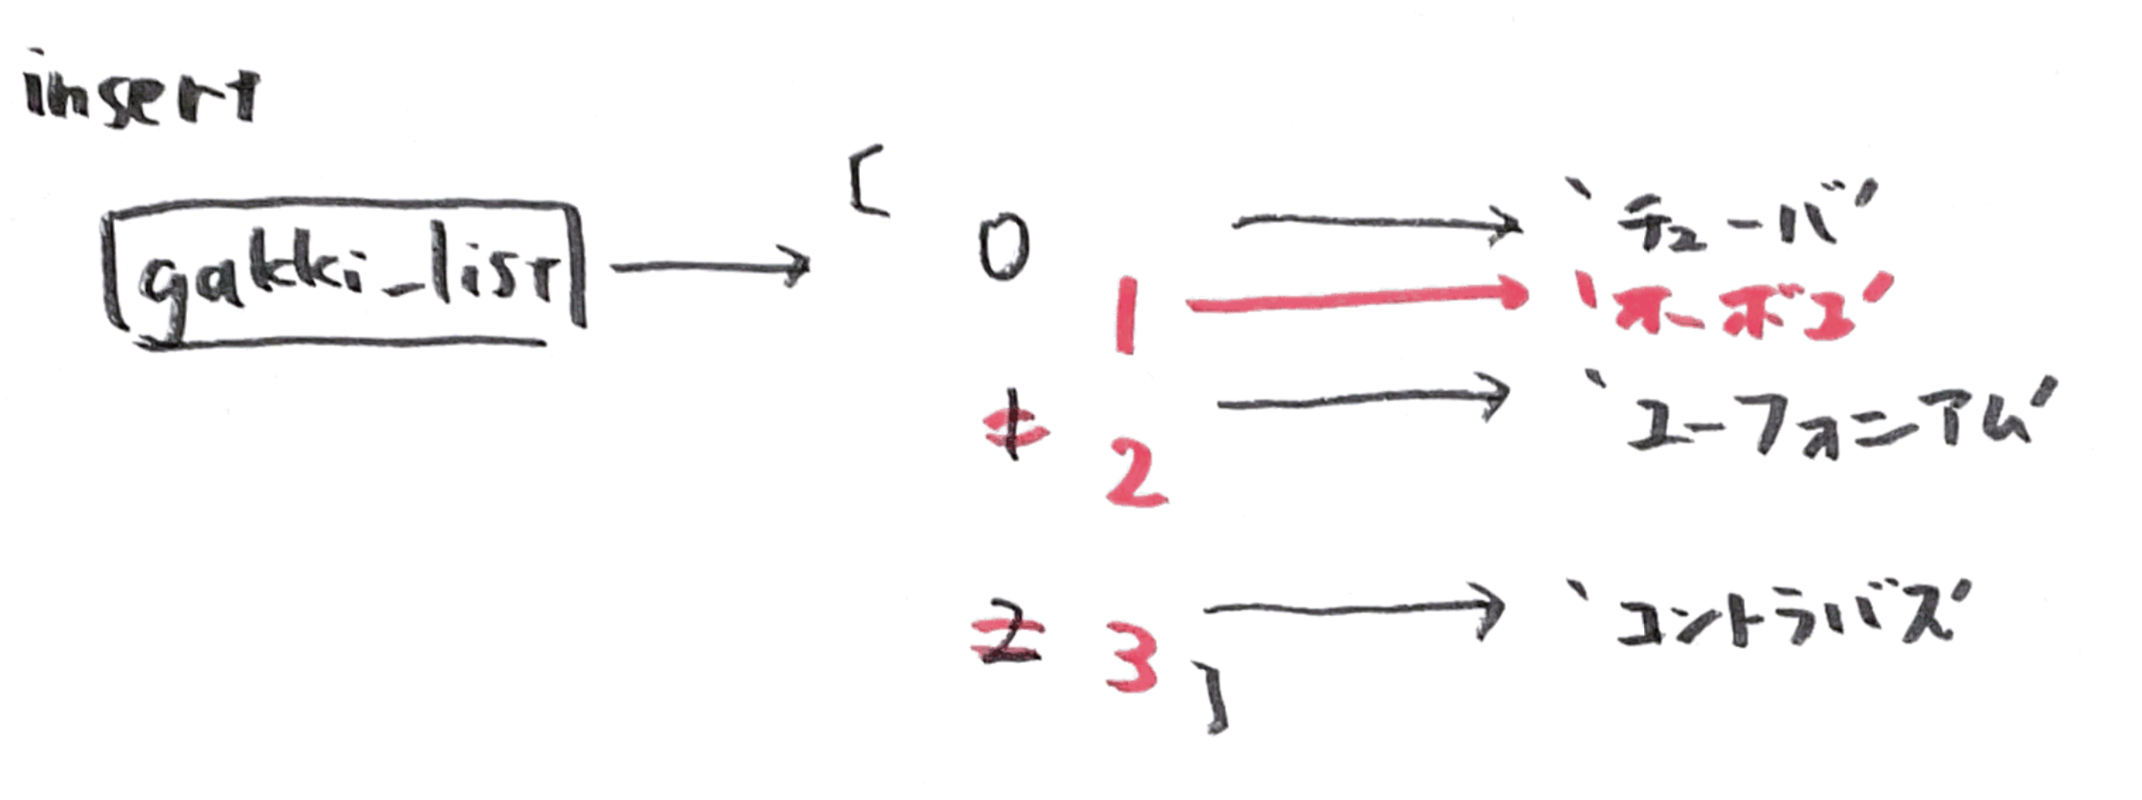 insert
gakki_list
[
0 'チューバ'
1 'オーボエ'
1 2 'ユーフォニアム'
2 3 'コントラバス'
]